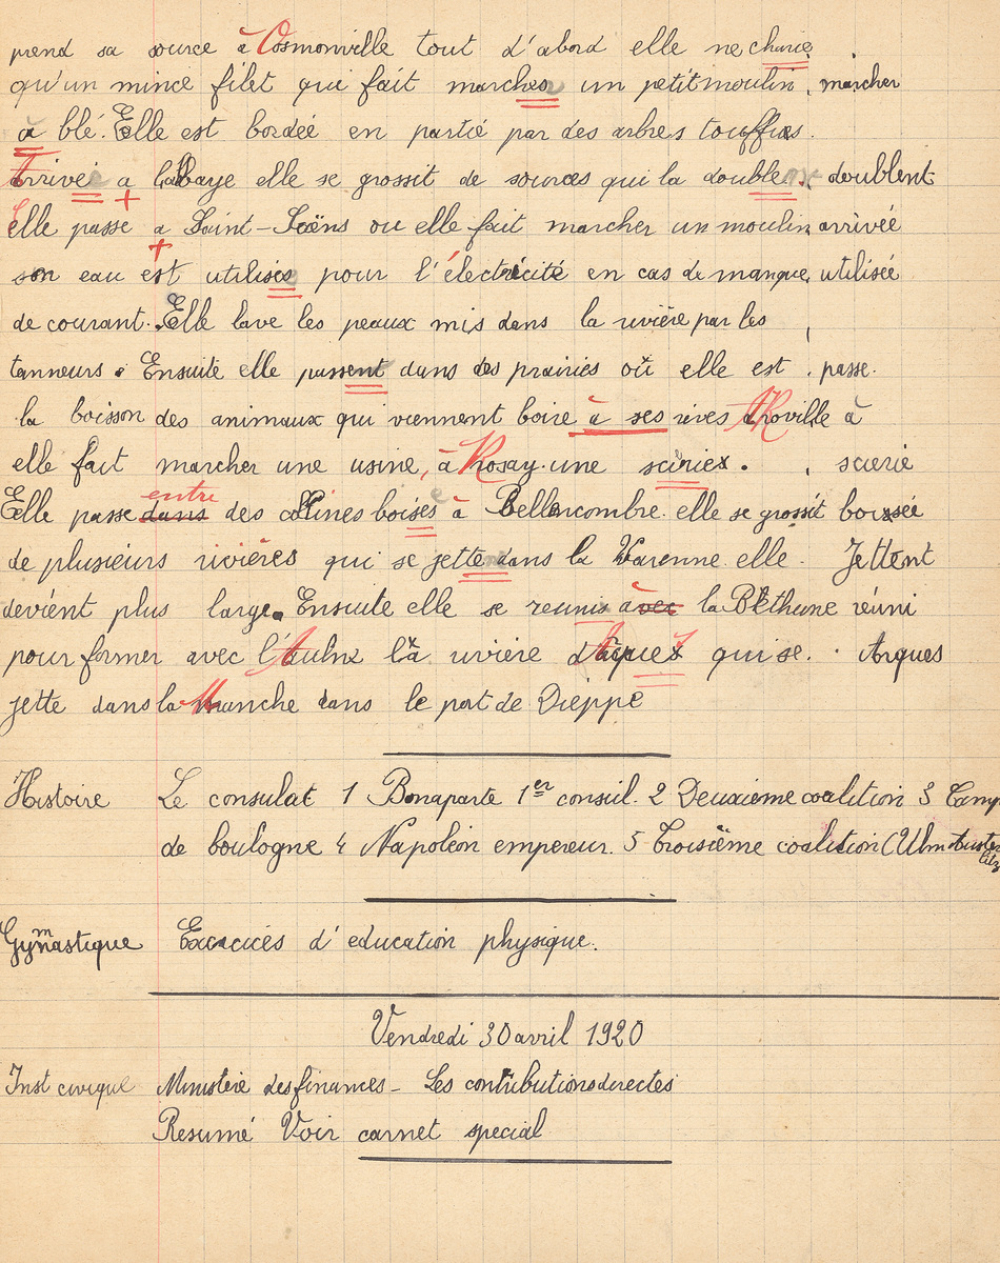 prend sa source à Osmonville tout d'abord elle ne charie
qu'un mince filet qui fait marches un petit moulin, marcher
à blé. Elle est bordée en partie par des arbres touffues.
Arrivée a l'abbaye elle se grossit de sources qui la double. doublent
Elle passe a Saint-Saëns ou elle fait marcher un moulin arrivée
son eau est utilisée pour l'électricité en cas de manque, utilisée
de courant. Elle lave les peaux mis dans la rivière par les
tanneurs. Ensuite elle passent dans des prairies où elle est, passe.
la boisson des animaux qui viennent boire à ses rives Roville à
elle fait marcher une usine, à Rosay. une scirie. , scierie
Elle passe dans entre des collines boisés à Bellencombre. elle se grossit boisée
de plusieurs rivières qui se jette dans la Varenne elle. Jettent
devient plus large. Ensuite elle se reunis avec la Béthune réuni
pour former avec l'Aulne la rivière d'Aques qui se. Arques
jette dans la Manche dans le port de Dieppe
Histoire Le consulat 1 Bonaparte 1er consul. 2 Deuxième coalition 3 Camp
de boulogne 4 Napoléon empereur. 5 Troisième coalition (Ulm Auster
litz
Gymnastique Exercices d'education physique.
Vendredi 30 avril 1920
Inst civique Ministère des finances - Les contributions directes
Resumé Voir carnet special